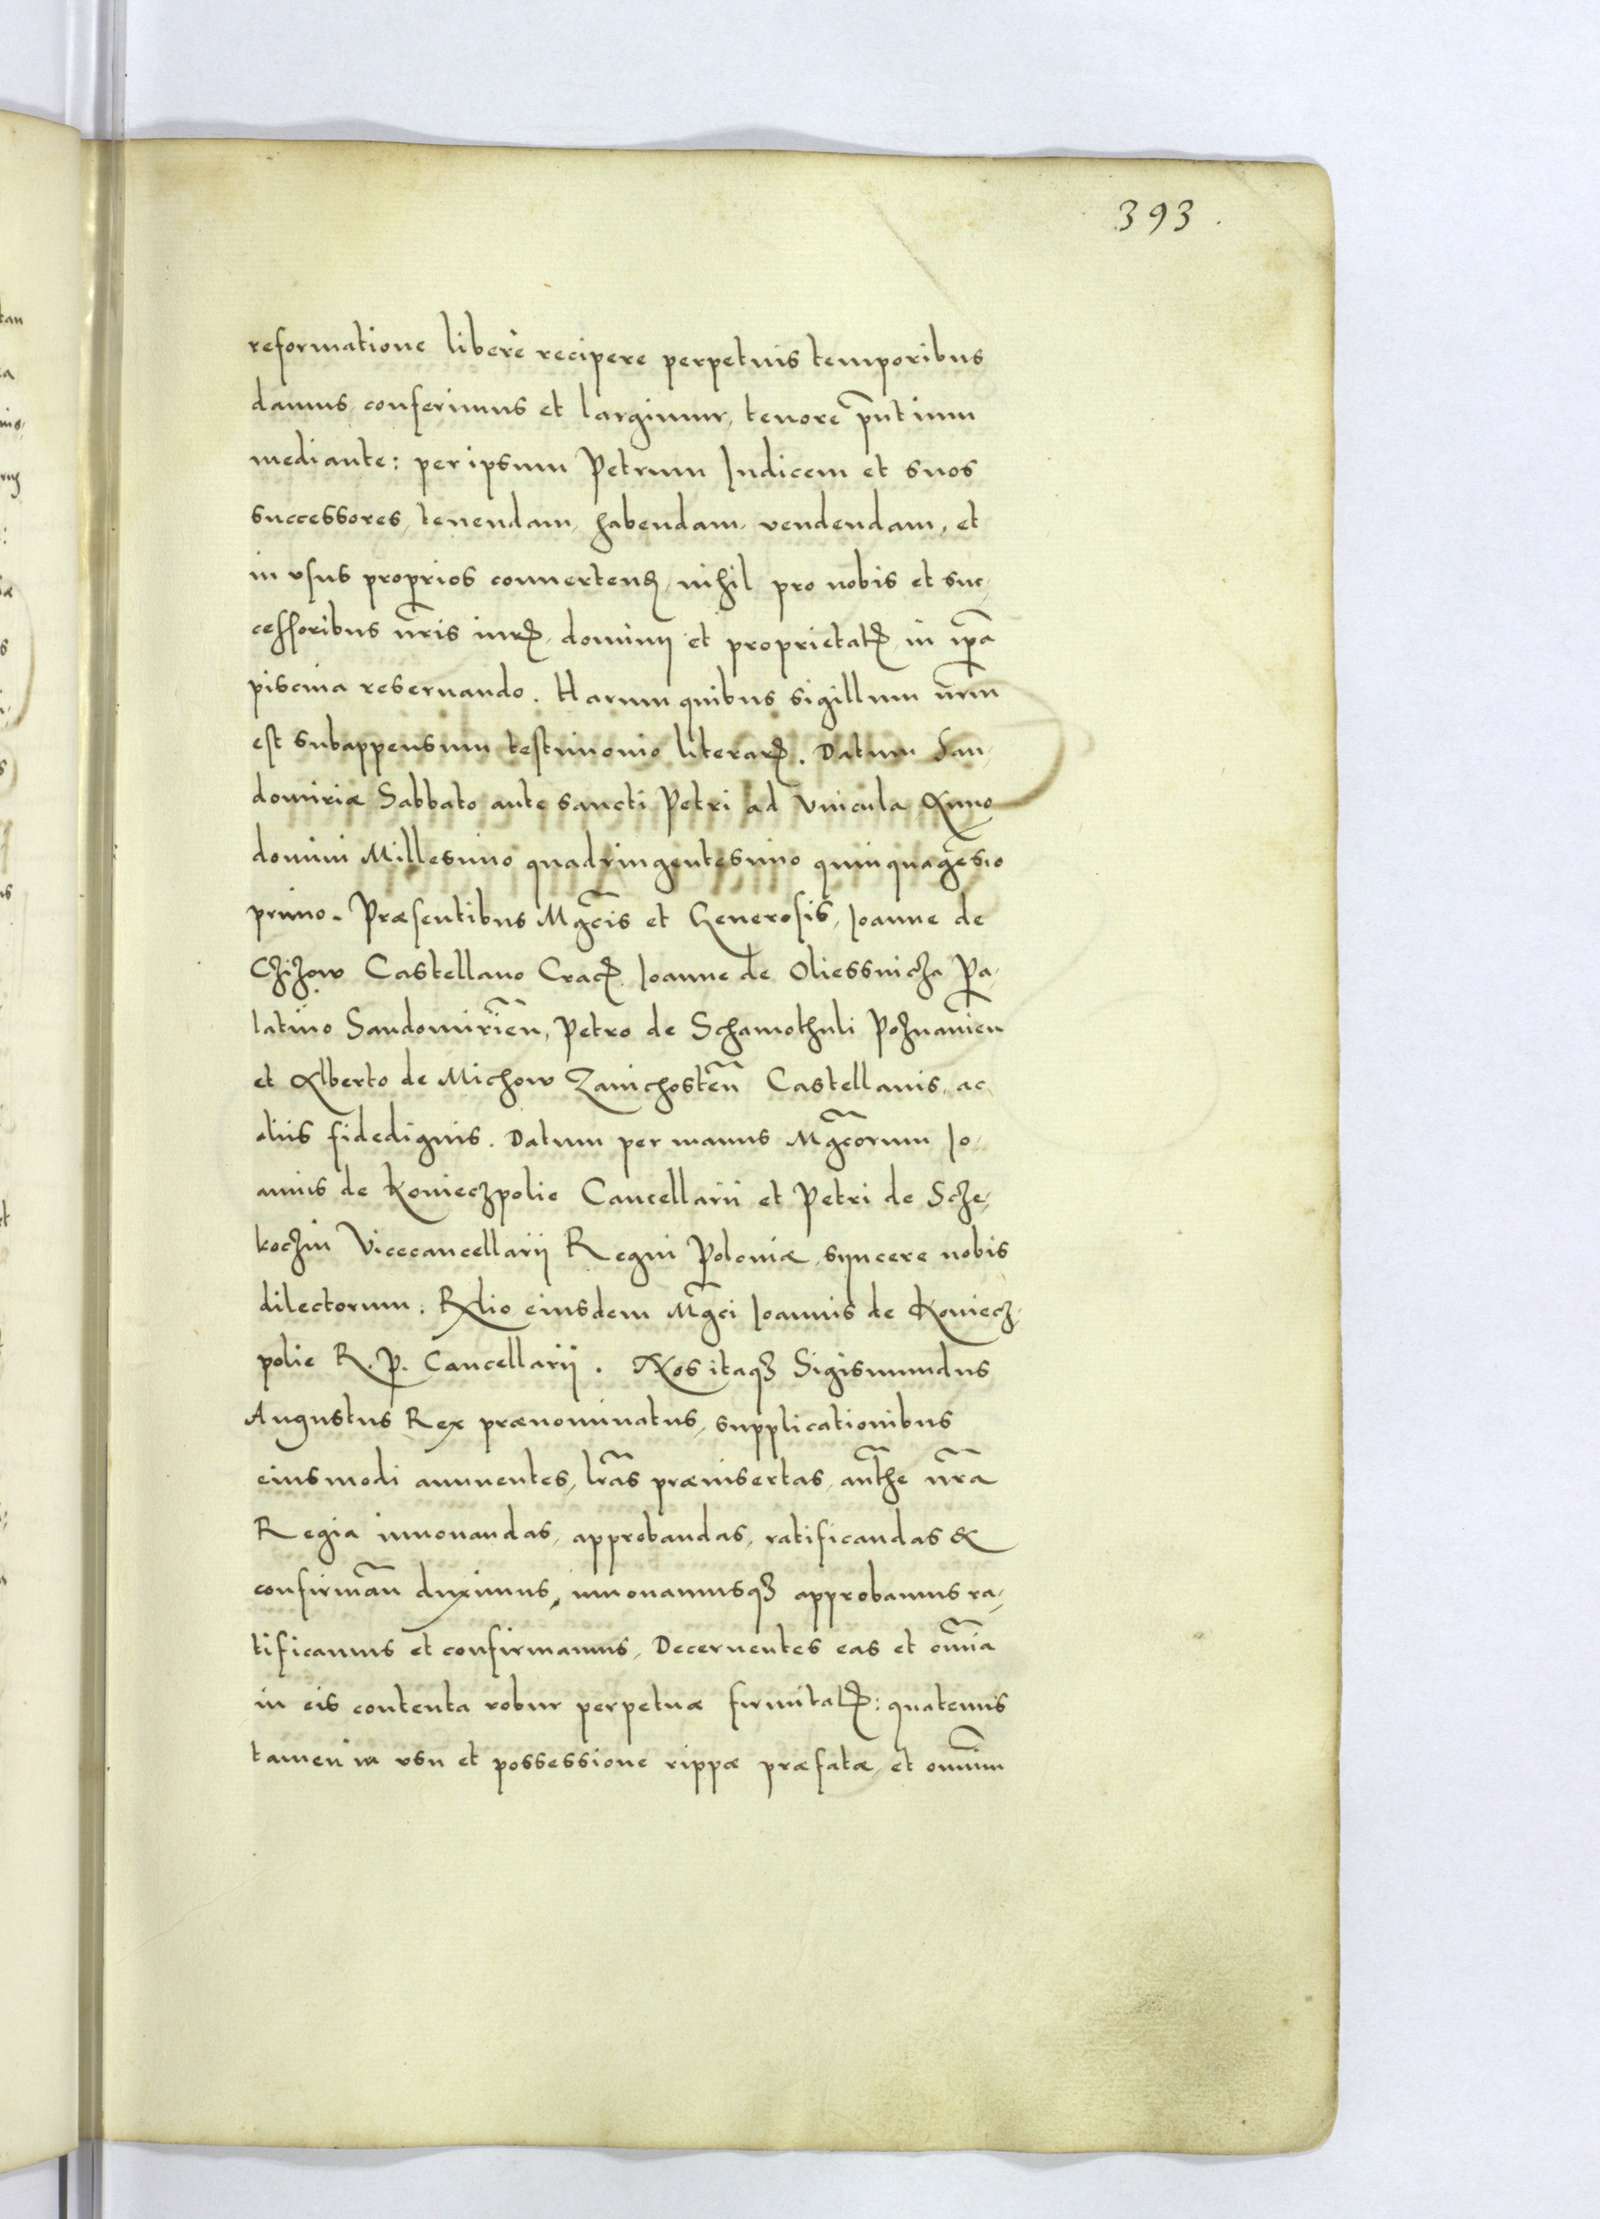 393.
reformatione liberè recipere perpetuis temporibus
damus, conferimus et largimur, tenore pn̄tium
mediante: per ipsum Petrum Iudicem et suos
successores, tenendam, habendam, vendendam, et
in vsus proprios conuertenꝺ, nihil pro nobis et suc-
cessoribus n̄ris iurꝭ, dominij et proprietatꝭ, in ip̄a
piscina reseruando. Harum quibus sigillum n̄rm
est subappensum testimonio literarꝝ. Datum San-
domiriæ Sabbato ante sancti Petri ad Vincula Anno
domini Millesimo quadringentesimo quinquagēsio
primo. Præsentibus Mgc̄is et Generosis, Ioanne de
Czizow Castellano Cracꝭ. Ioanne de Oliessnicza Pa-
latino Sandomirień, Petro de Schamothuli Poznanień
et Alberto de Michow Zawichosteń Castellanis, ac
aliis fidedignis. Datum per manus Mgc̄orum Io-
annis de Konieczpolie Cancellarii et Petri de Scze-
koczin Vicecancellarij Regni Poloniæ, syncere nobis
dilectorum. Rl̄io eiusdem Mgc̄i Ioannis de Koniecz-
polie R. P. Cancellarij. Nos itaqꝫ Sigismundus
Augustus Rex prænominatus, supplicationibus
eiusmodi annuentes, lr̄as præinsertas, aut̄he n̄ra
Regia innouandas, approbandas, ratificandas &
confirmān duximus, innouamusqꝫ approbamus ra-
tificamus et confirmamus, Decernentes eas et om̄ia
in eis contenta robur perpetuæ firmitatꝭ: quatenus
tamen in vsu et possessione rippæ præfatæ, et om̄nium